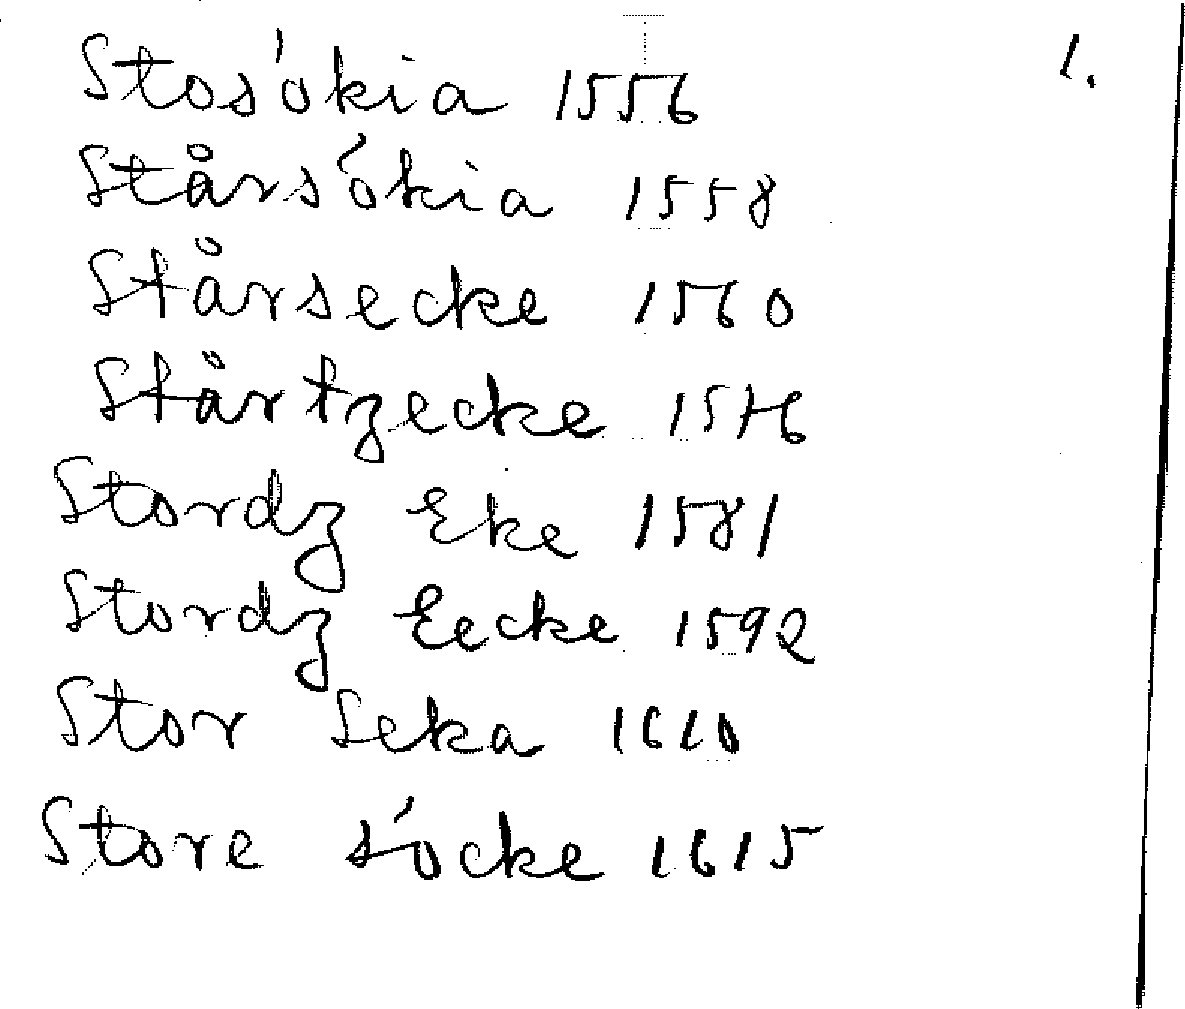 Stosókia 1556 1.
Stårsókia 1558
Stårsecke 1560
Stårtzecke 1576
Stordz Eke 1581
Stordz Eecke 1592
Stor Seka 1610
Store sócke 1615